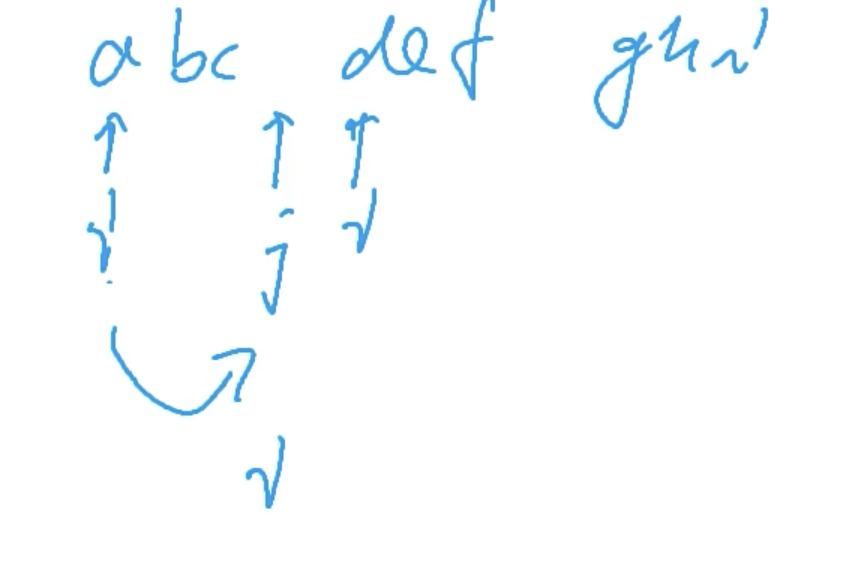 abc def ghi
i j i
i